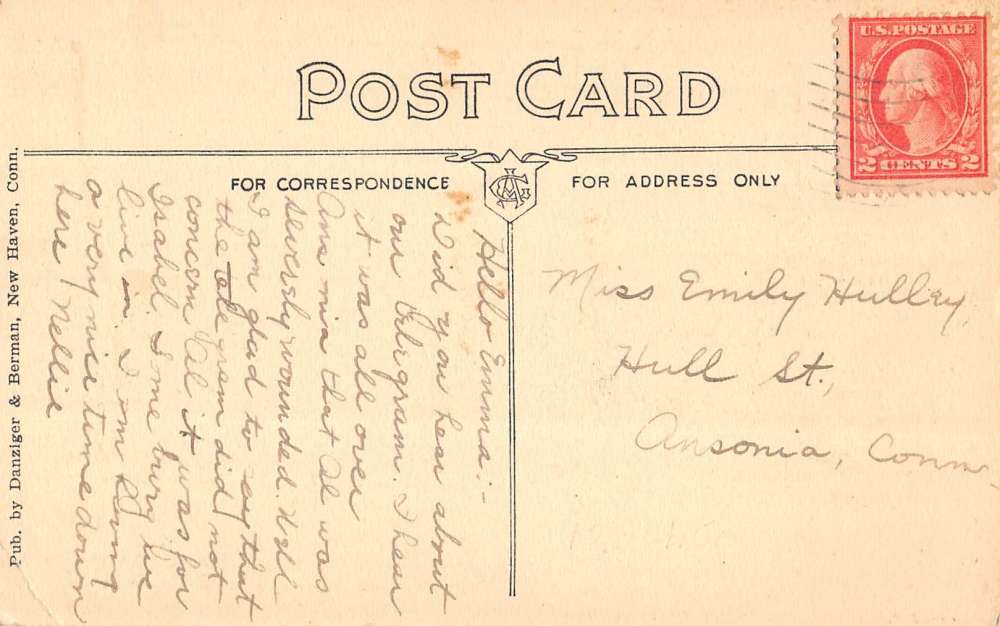 POST CARD
U.S. POSTAGE
2 CENTS 2
FOR CORRESPONDENCE
FOR ADDRESS ONLY
Hello Emma:-
Did you hear about
our telegram. I hear
it was all over
Ansonia that Al was
seversly wounded. Well
I am glad to say that
the telegram did not
concern Al it was for
Isabel. Some burg we
live in. I am having
a very nice time down
here Nellie
Miss Emily Hulley,
Hull St.,
Ansonia, Conn,
Pub. by Danziger & Berman, New Haven, Conn.